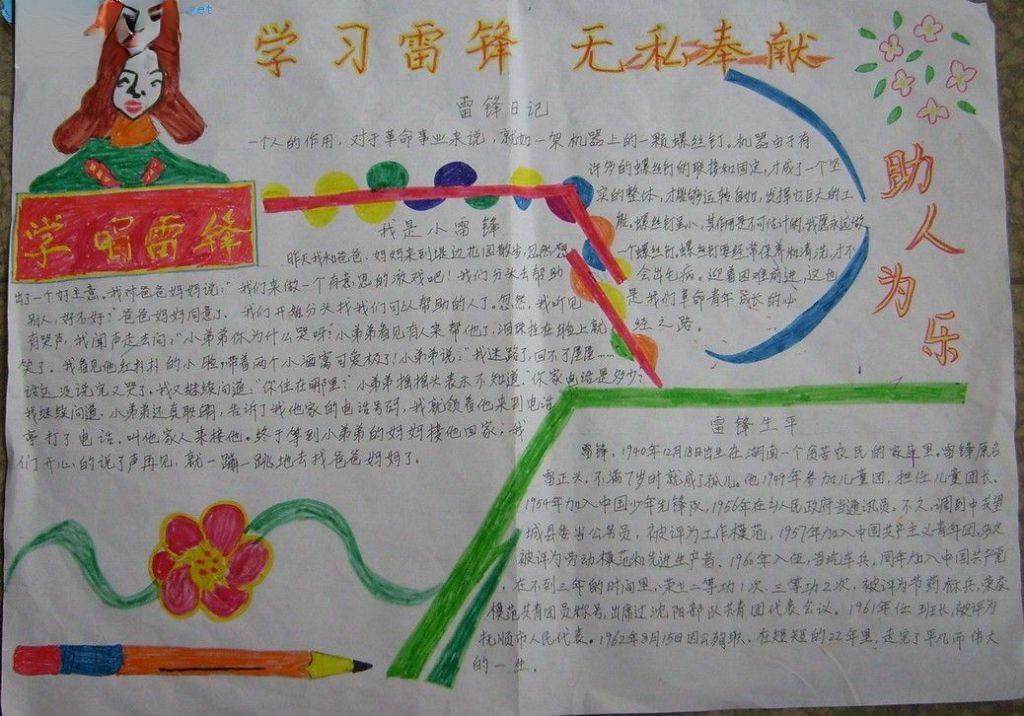 .net
学习雷锋 无私奉献
学唱雷锋
助人为乐
雷锋日记
一个人的作用，对于革命事业来说，就如一架机器上的一颗螺丝钉。机器由于有
许多的螺丝钉的联接和固定，才成了一个坚
实的整体，才能够运转自如，发挥它巨大的工
能。螺丝钉虽小，其作用是不可估计的，我愿永远做
一个螺丝钉。螺丝钉要经常保养和清洗，才不
会出毛病。迎着困难前进，这也
是我们革命青年成长的必
经之路。
我是小雷锋
昨天我和爸爸、妈妈来到堤边花园散步，忽然想
出了一个好主意。我对爸爸妈妈说：“我们来做一个有意思的游戏吧！我们分头去帮助
别人，好不好？”爸爸妈妈同意了。我们开始分头找我们可以帮助的人了。忽然，我听见
有哭声，我闻声走去问：“小弟弟你为什么哭呀？小弟弟看见有人来帮他了，泪珠挂在脸上就
笑了。我看见他红扑扑的小脸，带着两个小酒窝可爱极了！小弟弟说：“我迷路了，回不了屋……
话还没说完又哭了。我又继续问道：“你住在哪里？”小弟弟摇摇头表示不知道。“你家电话是多少？
我继续问道。小弟弟还真聪明，告诉了我他家的电话号码，我就领着他来到电话
亭打了电话，叫他家人来接他。终于等到小弟弟的妈妈接他回家；我
们开心的说了声再见，就一蹦一跳地去找爸爸妈妈了。
雷锋生平
雷锋，1940年12月18日出生在湖南一个贫苦农民的家庭里。雷锋原名
雷正兴，不满7岁时就成了孤儿。他1949年参加儿童团，担任儿童团长。
1954年加入中国少年先锋队，1956年在乡人民政府当通讯员。不久，调到中共望
城县委当公务员，被评为工作模范，1957年加入中国共产主义青年团，多次
被评为劳动模范和先进生产者。1960年入伍，当汽车兵，同年加入中国共产党
，在不到三年的时间里，荣立二等功1次，三等功2次，被评为节约标兵，荣获
模范共青团员称号，出席过沈阳部队共青团代表会议。1961年任班长，被评为
抚顺市人民代表。1962年8月15日因公殉职，在短短的22年里，走完了平凡而伟大
的一生。